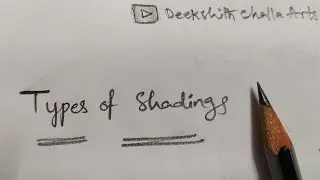 Deekshith Challa Arts
Types of Shadings